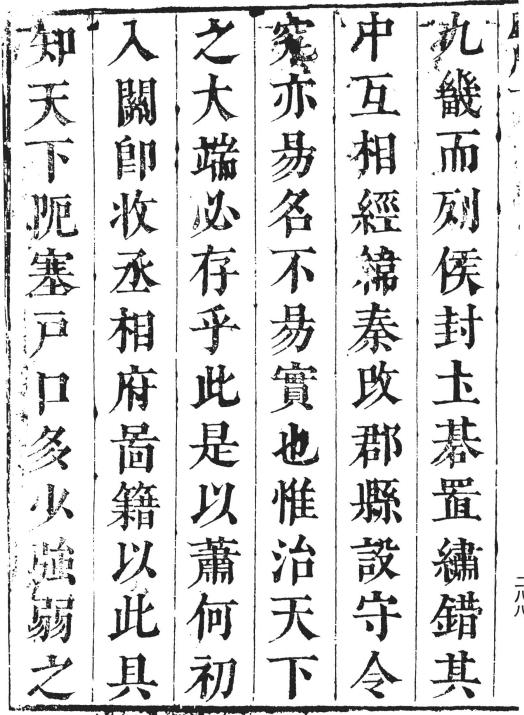 九畿而列侯封土碁置繡錯其
中互相經緯秦改郡縣設守令
究亦易名不易實也惟治天下
之大端必存乎此是以蕭何初
入關卽收丞相府啚籍以此具
知天下阨塞戸口多少強弱之
二八八